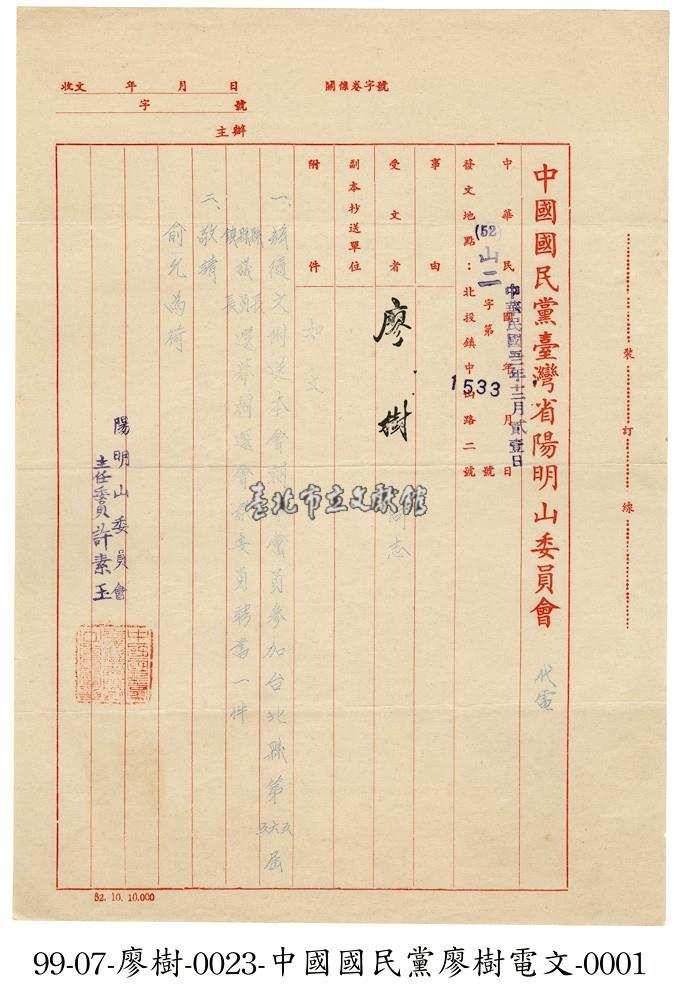 收文 年 月 日
字 號
主辦
關係卷字號
裝訂線
中國國民黨臺灣省陽明山委員會 代電
中華民國 年 月 日
中華民國五二年十二月貳壹日
(52)山二 字第 1533 號
發文地點：北投鎮中山路二號
事由
受文者 廖樹 同志
副本抄送單位
附件 如文
一、茲隨文附送本會輔選黨員參加台北縣第五六五屆
縣長縣議員鎮長選舉輔選會委員聘書一件
二、敬請
俞允為荷
陽明山委員會
主任委員許素玉
52. 10. 10.000
臺北市立文獻館
99-07-廖樹-0023-中國國民黨廖樹電文-0001